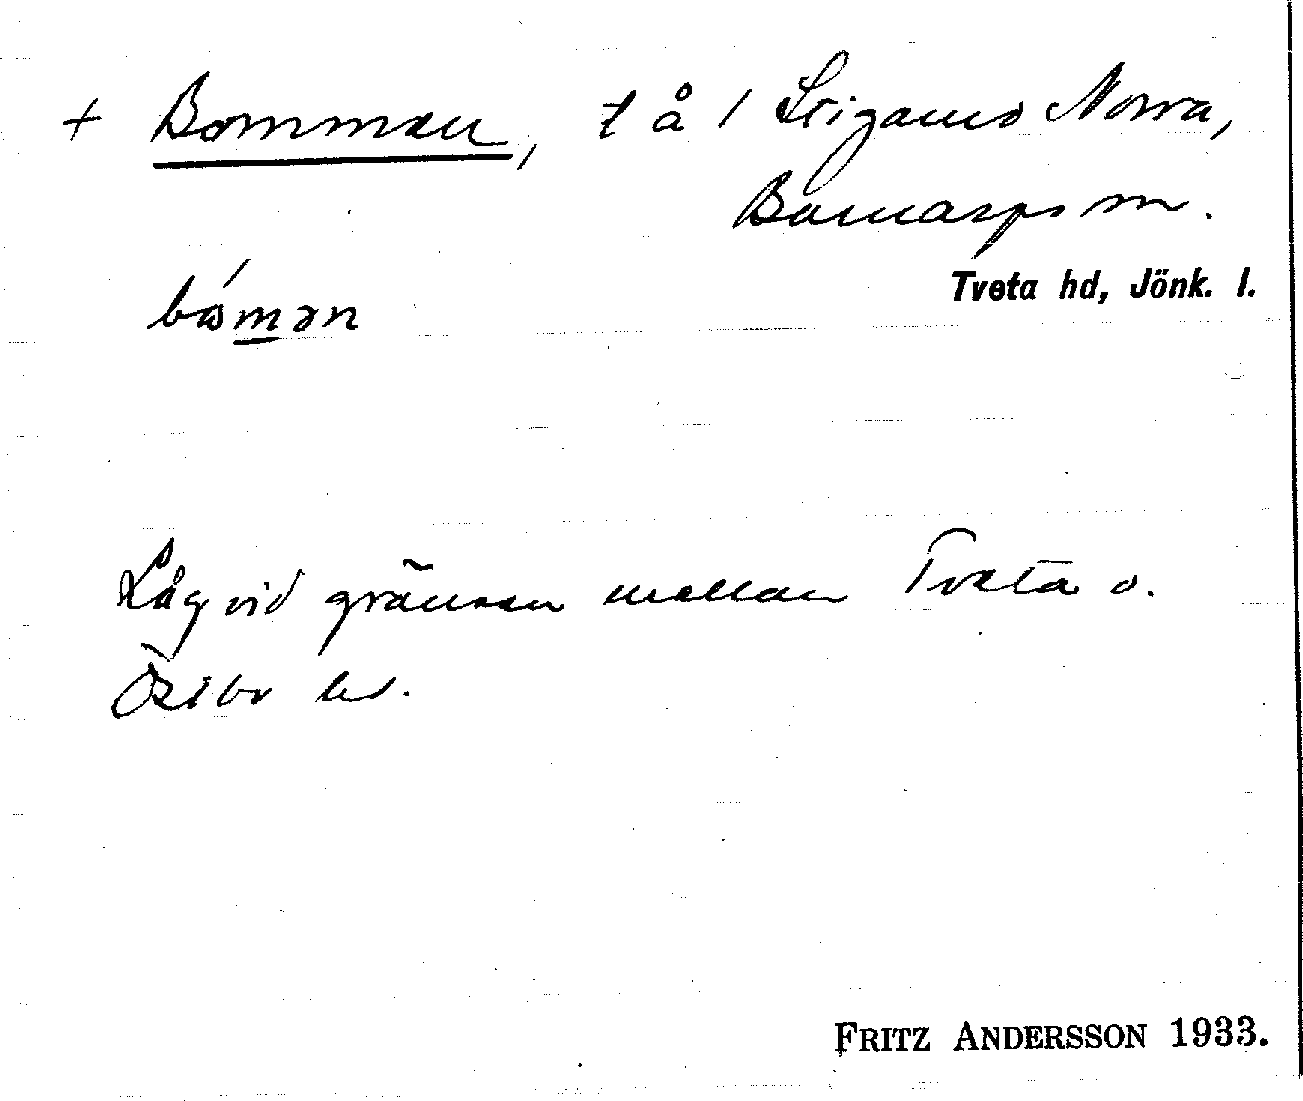 + Bomman, t å 1 Stigamo Norra,
Barnarps sn.
Tveta hd, Jönk. l.
bómən
Låg vid gränsen mellan Tveta o.
Östbo hd.
FRITZ ANDERSSON 1933.